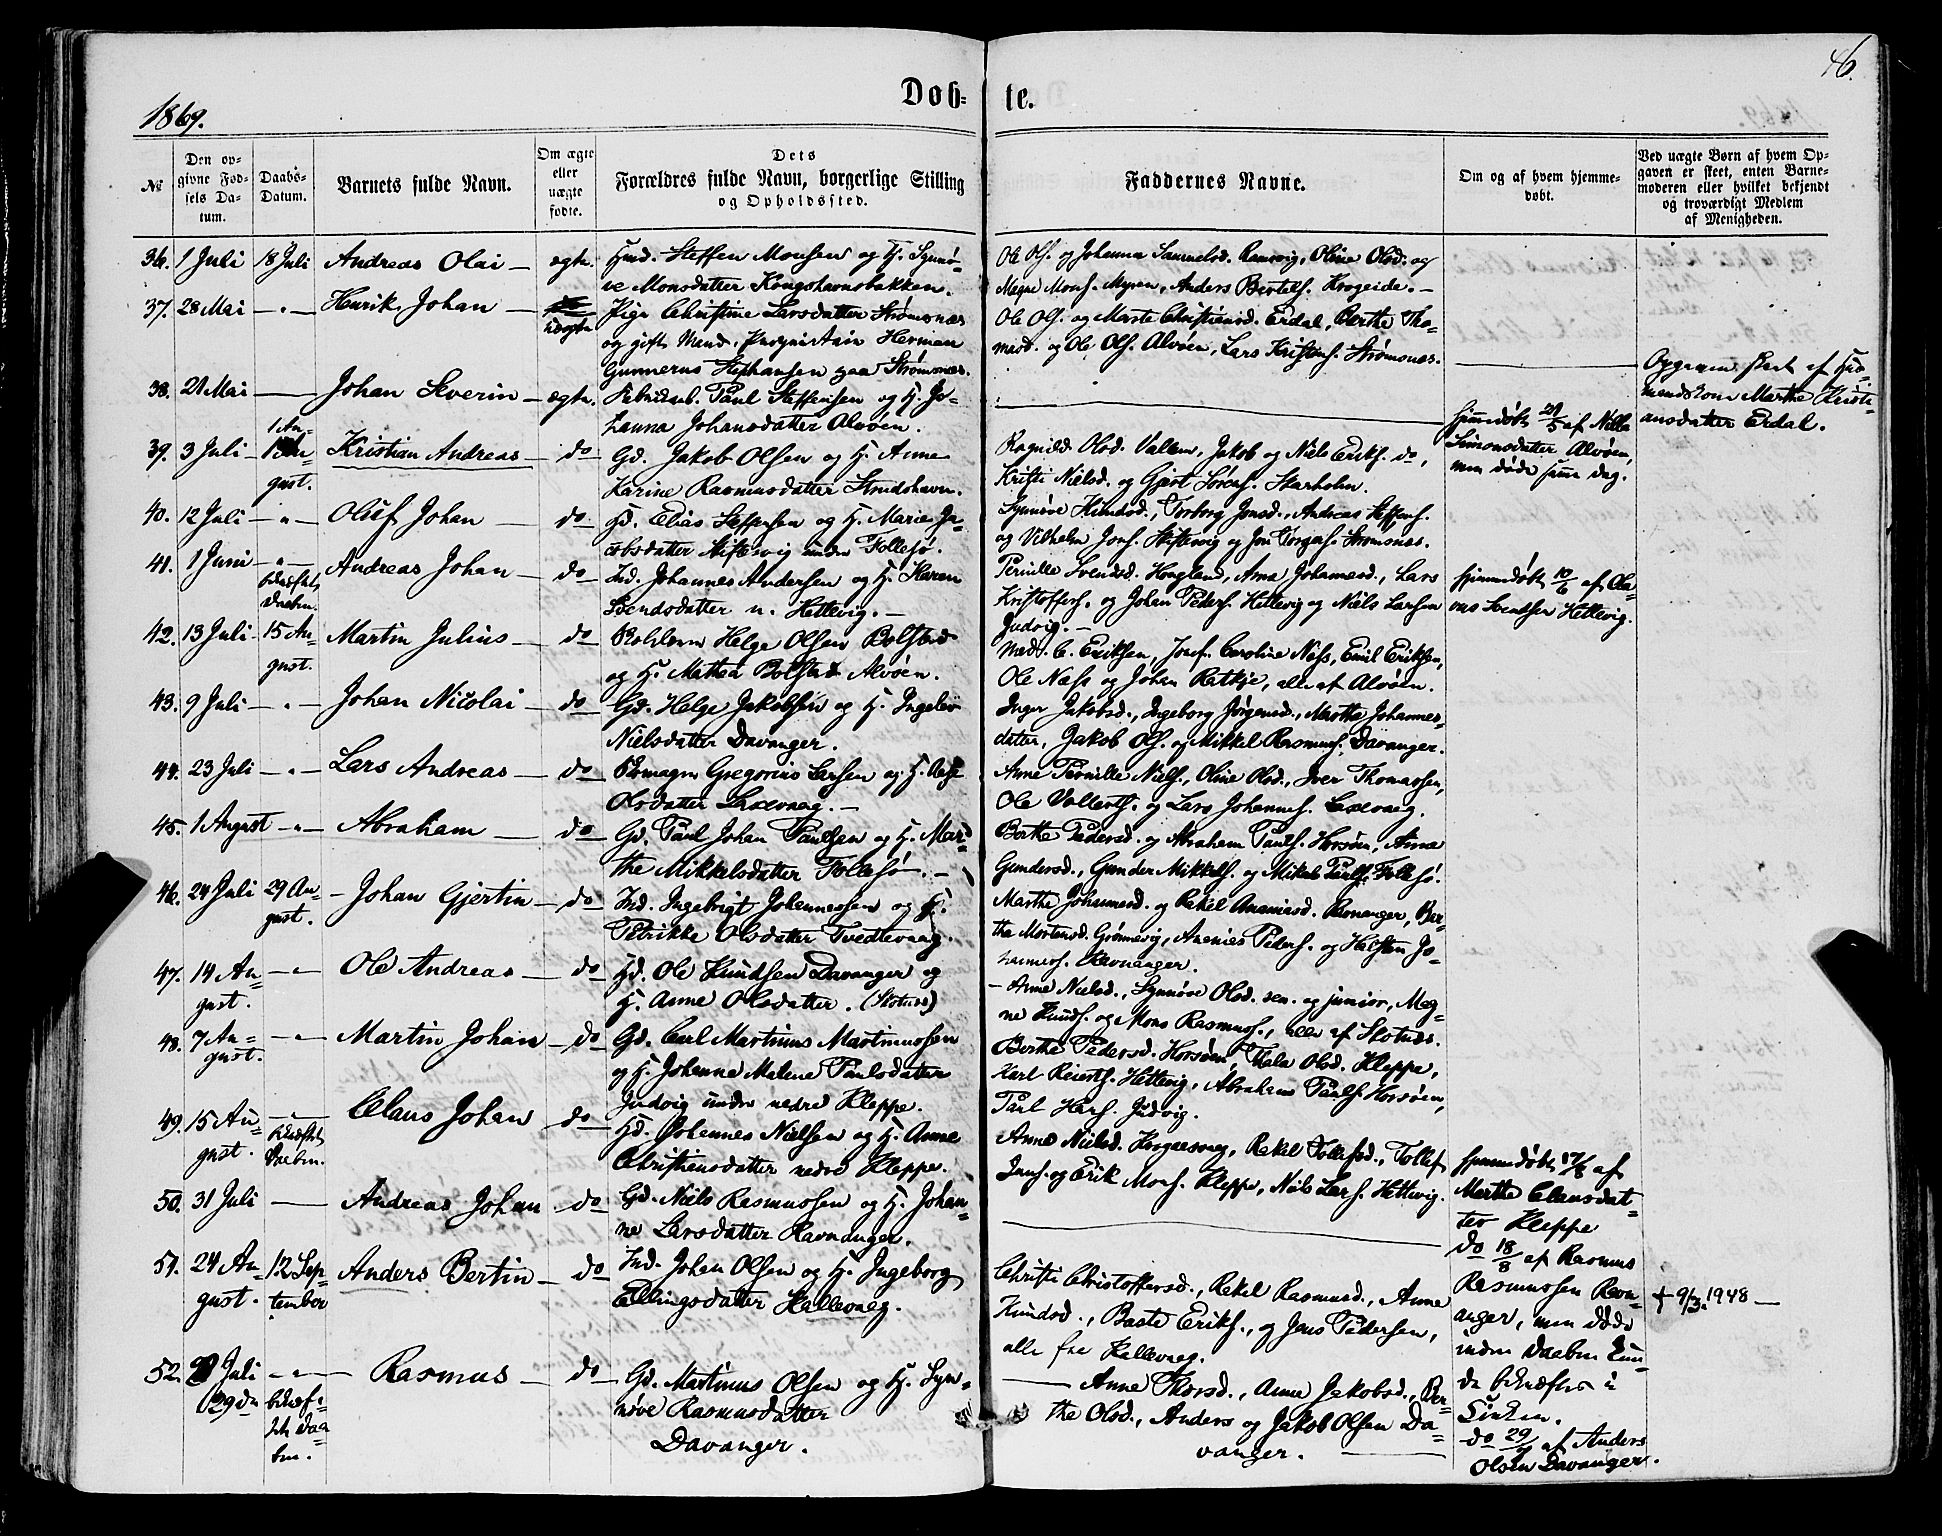 46.
Døb-te.
1869.
№
Den opgivne Fødsels Datum.
Daabs-Datum.
Barnets fulde Navn.
Om ægte eller uægte fødte.
Dets Forældres fulde Navn, borgerlige Stilling og Opholdssted.
Faddernes Navne.
Om og af hvem hjemmedøbt.
Ved uægte Børn af hvem Opgaven er skeet, enten Barnemoderen eller hvilket bekjendt og troværdigt Medlem af Menigheden.
36. 1 Juli 18 Juli Andreas Olai — ægte. Steffen Monsen og H. Synnø-
ve Monsdatter Kongshavnsbakken.
Ole Ols. og Johanna Samuelsd. Ramsvig, Oline Olsd. og
Magne Mons. Myren, Anders Bertels. Krogeide. —
37. 28 Mai — " — Henrik Johan — uægte Pige Christine Larsdatter Strømsnæs
og gift Mand, Herman
Gunnerus Stephansen paa Strømsnæs.
Ole Ols. og Marte Christiensd. Erdal, Berthe Tho-
masd. og Ole Ols. Alvøen, Lars Kristens. Strømsnæs.
Opgaven skeet af
Marthe Kristi-
ansdatter Erdal.
38. 21 Mai — Johan Severin — ægte. Fabrikarb. Paul Steffensen og H. Jo-
hanna Johansdatter Alvøen.
hjemmedøbt 21/5 af Nille
Simonsdatter Alvøen,
men døde samme Dag.
39. 3 Juli — 1 Au-
gust. Kristian Andreas — do Gd. Jakob Olsen og H. Anne
Karine Rasmusdatter Strudshavn.
Ragnild Olsd. Vallem, Jakob og Niels Eriks. do,
Kristi Nielsd. og Gjert Sørens. Skarholm.
40. 12 Juli — " — Oluf Johan — do Gd. Elias Steffensen og H. Marie Ja-
cobsdatter Skiftesvig under Follesø.
Synnøve Knudsd., Torborg Jonsd., Andreas Steffens.
og Vilhelm Jons. Skiftesvig og Jon Strømsnæs.
41. 1 Juni — " — bekræftet
Daaben. Andreas Johan — do Ind. Johannes Andersen og H. Karen
Svendsdatter n. Hettevig. —
Pernille Svendsd. Hougland, Anna Johannesd., Lars
Kristoffers. og Johan Peders. Hettevig og Niels Larsen
Judvig. —
hjemmedøbt 10/6 af Ola-
vus Svendsen Hettevig.
42. 13 Juli 15 Au-
gust. Martin Julius — do Helge Olsen Bolstad
og H. Mathea Bolstad Alvøen.
Mad. C. Eriksen, Caroline Næss, Emil Eriksen,
Ole Næss og Johan Ratkje, alle af Alvøen.
43. 9 Juli — " — Johan Nicolai — do Gd. Helge Jakobsen og H. Ingeleiv
Nielsdatter Davanger.
Inger Jakobsd., Ingeborg Jørgensd., Martha Johannes-
datter, Jakob Ols. og Mikkel Rasmuss. Davanger.
44. 23 Juli — " — Lars Andreas — do Gregorius Larsen og H. Aase
Olsdatter Laxevaag. —
Anne Pernille Niels., Oline Olsd., Iver Thomassen,
Ole Vollerts. og Lars Johannes. Laxevaag.
45. 1 August — " — Abraham — do Gd. Paul Johan Paulsen og H. Mar-
the Mikkelsdatter Follesø. —
Berthe Pedersd. og Abraham Pauls. Horsøen, Anne
Gundersd., Gunder Mikkels. og Mikal Pauls. Follesø.
46. 24 Juli 29 Au-
gust. — Johan Gjertin — do Ind. Ingebrigt Johannessen og H.
Petrikke Olsdatter Tvedtevaag.
Marthe Johannesd. og Rakel Ananiasd. Ravnanger, Ber-
the Mortensd. Grønnevig, Ananias Peders. og Helsten Jo-
hannes. Ravnanger.
47. 14 Au-
gust. — " — Ole Andreas — do Gd. Ole Knudsen Davanger og
H. Anne Olsdatter. (Slotnæs)
— Anne Nielsd., Synnøve Olsd. sen. og junior, Mag-
ne Knuds. og Mons Rasmuss., alle af Slotnæs.
48. 7 Au-
gust. — " — Martin Johan — do Gd. Carl Martinus Martinussen
og H. Johanne Malene Paulsdatter
Judvig under nedre Kleppe.
Berthe Pedersd. Horsøen, Thala Olsd. Kleppe,
Karl Reierts. Hettevig, Abraham Pauls. Horsøen,
Paul Hans. Judvig.
49. 15 Au-
gust. — " — bekræftet
Daaben. Claus Johan do Gd. Johannes Nielsen og H. Anne
Christiensdatter nedre Kleppe.
Anne Nielsd. Krogaasvaag, Rakel Tollefsd., Tollef
Jans. og Erik Mons. Kleppe, Nils Lars. Hettevig.
hjemmedøbt 17/8 af
Marthe Clausdat-
ter Kleppe
50. 31 Juli — Andreas Johan do Gd. Niels Rasmussen og H. Johan-
ne Larsdatter Ravnanger.
do 18/8 af Rasmus
Rasmussen Ravn-
anger, men døde
inden Daaben kun-
de bekræftes i
Kirken.
51. 24 Au-
gust. 12 Sep-
tember Anders Bertin — do Ind. Johan Olsen og H. Ingeborg
Ellingsdatter Hallevaag.
Christi Christoffersd., Rakel Rasmusd., Anne
Knudsd., Baste Eriks., og Jens Pedersen,
alle fra Hallevaag.
† 9/3. 1948 —
52. Juli
(29de — " — bekræf-
tet Daa-
ben. Rasmus — do Gd. Martinus Olsen og H. Syn-
nøve Rasmusdatter
Davanger.
— Anne Thorsd., Anna Jakobsd., Ber-
the Olsd., Anders og Jakob Olsen Da-
vanger. —
do 29/7 af Anders
Olsen Davanger.